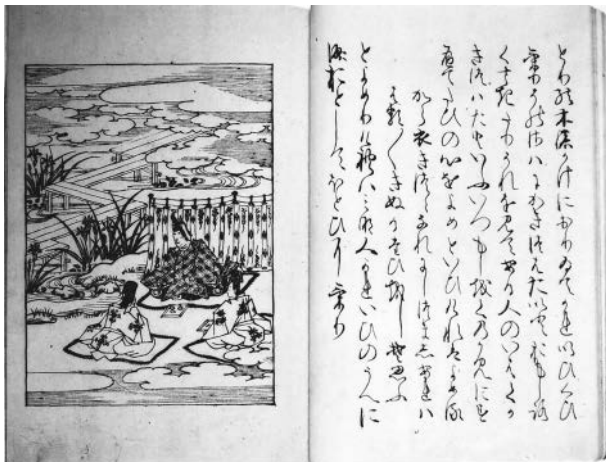 とりの木のかけにおりゐてかれいひくひ
けりそのさはにかきつはたいとおもしろ
くさきたりそれを見てある人のいはくか
きつはたといふいつもしを句のかみにす
へてたひの心をよめといひけれはよめる
から衣きつゝなれにしつましあれは
はる〱きぬるたひをしそ思ふ
とよめりけれはみな人かれいひのうへに
涙おとしてほとひにけり